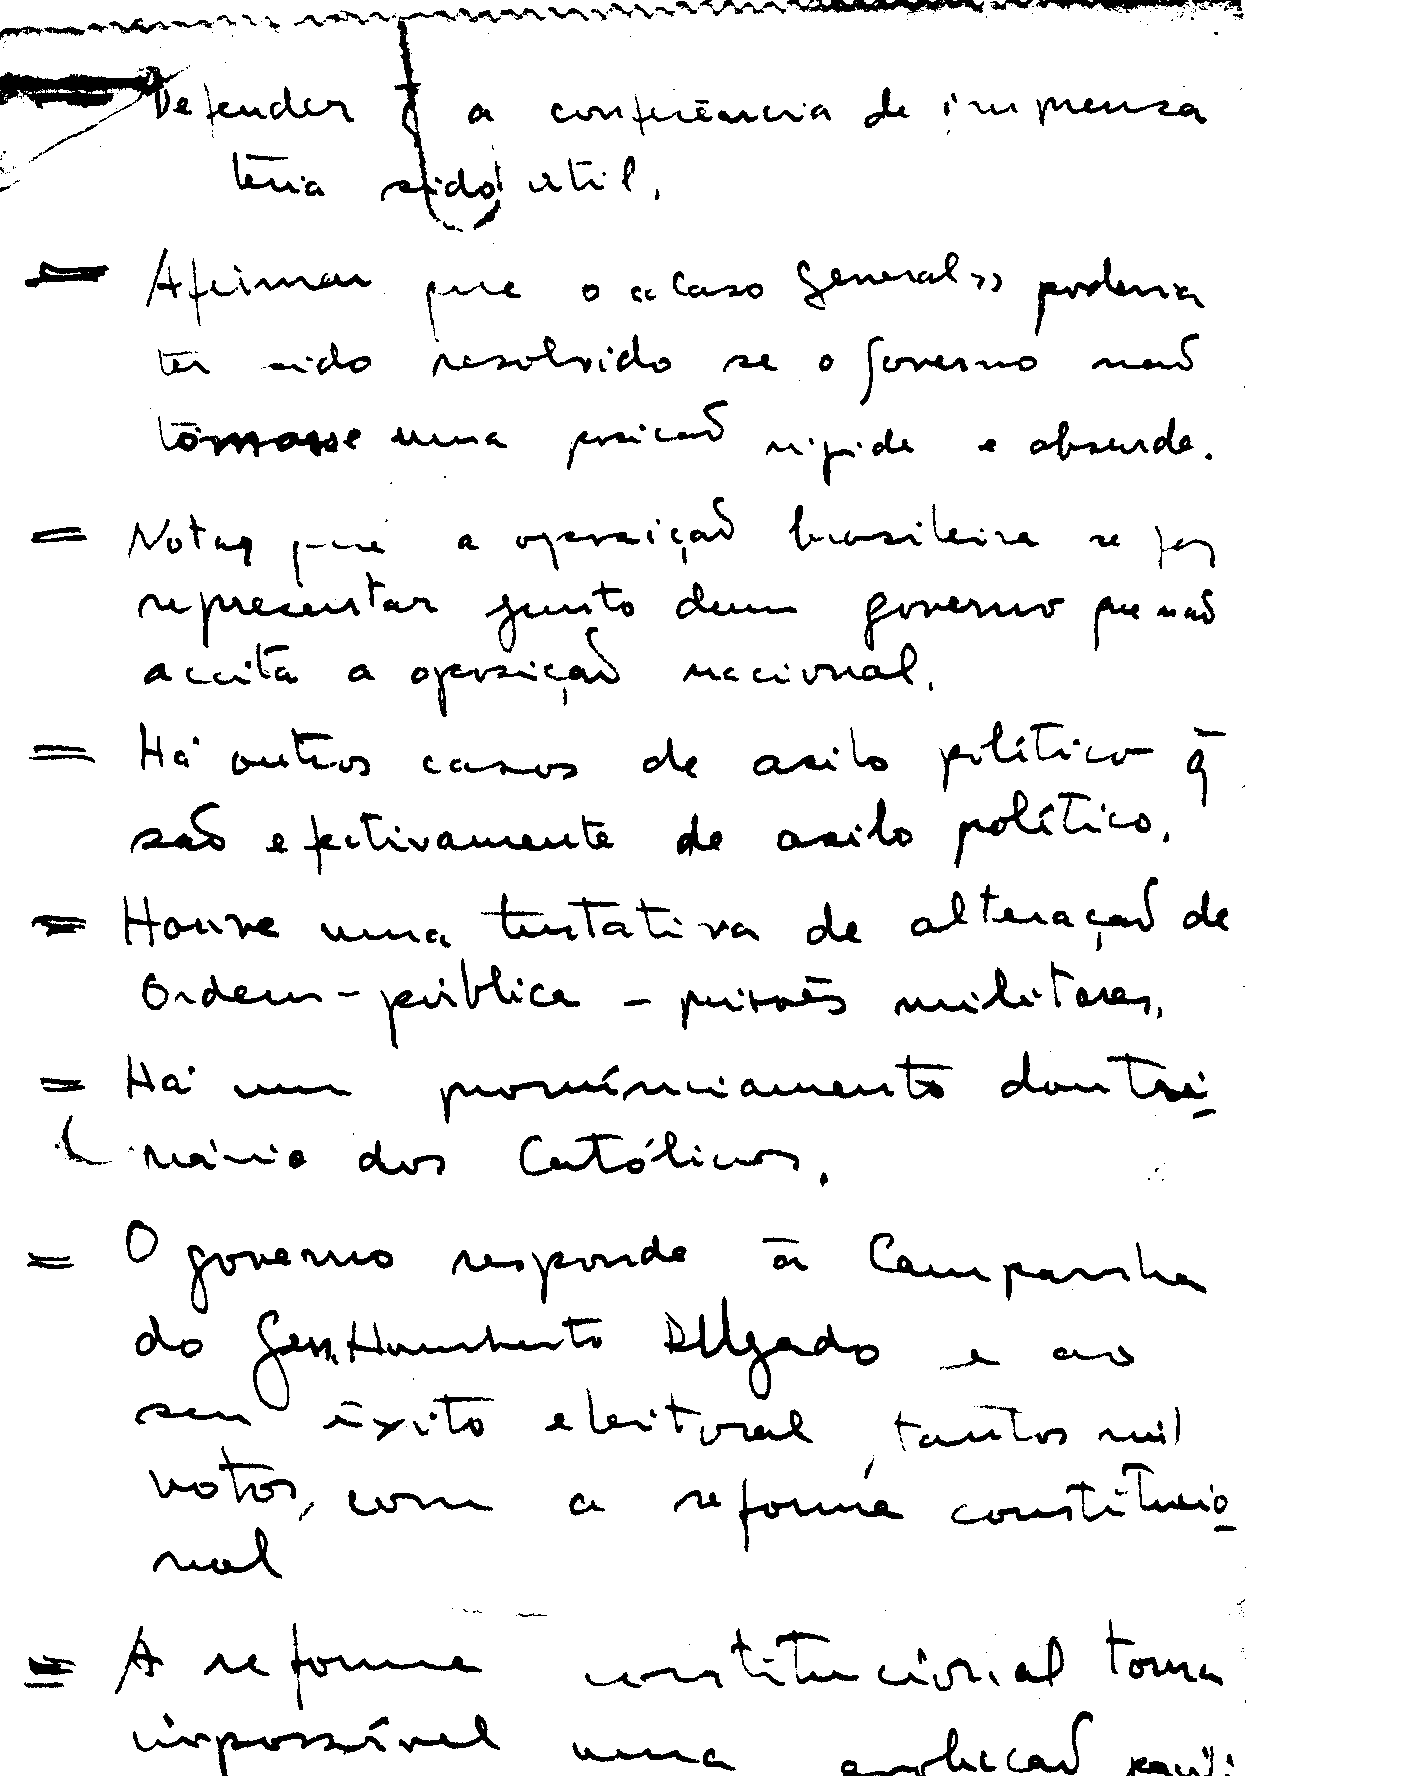 = Defender q̄ a conferência de imprensa
teria sido útil.
= Afirmar que o «caso general» poderia
ter sido resolvido se o governo não
tomasse uma posição rígida e absurda.
= Notar que a oposição brasileira se fez
representar junto dum governo que não
aceita a oposição nacional.
= Há outros casos de asilo político q̄
são efectivamente de asilo político.
= Houve uma tentativa de alteração de
Ordem-pública - prisões militares.
= Há um pronúnciamento doutri-
nário dos Católicos.
= O governo responde à Campanha
do Gen. Humberto Delgado e ao
seu êxito eleitoral, tantos mil
votos, com a reforma constitucio-
nal
= A reforma constitucional torna
impossível uma